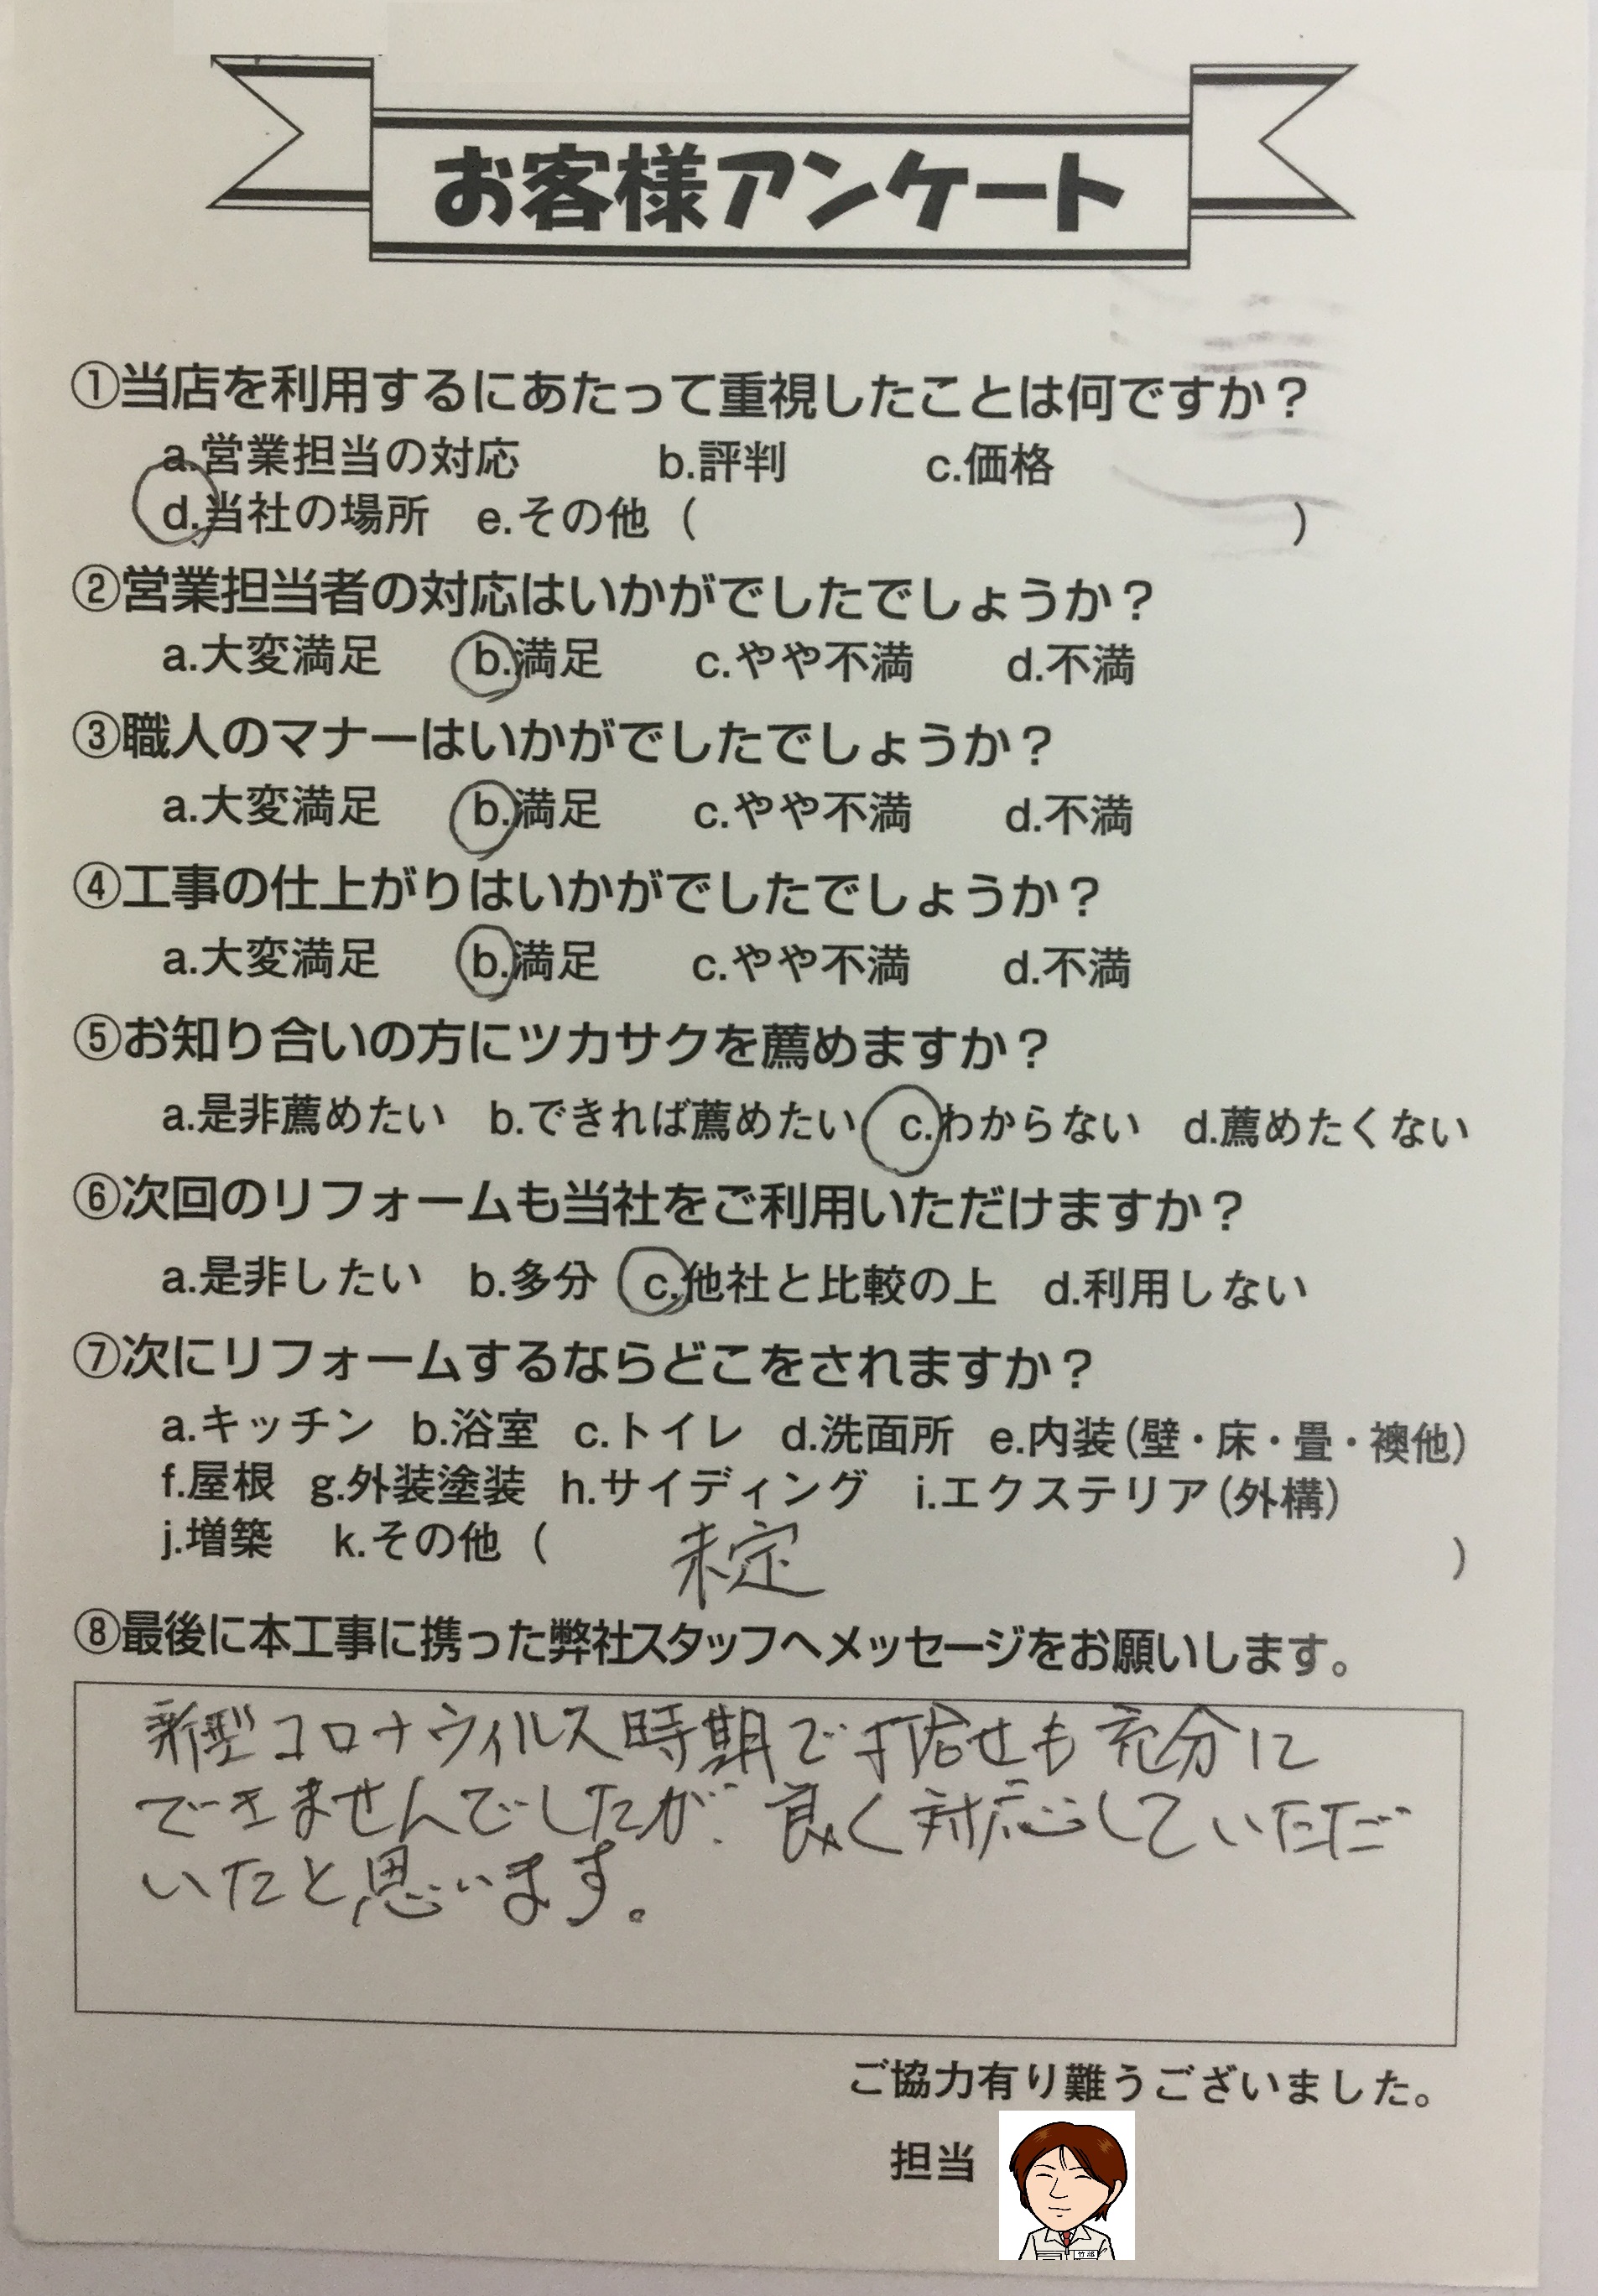 お客様アンケート
①当店を利用するにあたって重視したことは何ですか？
a.営業担当の対応 b.評判 c.価格
d.当社の場所 e.その他（ ）
②営業担当者の対応はいかがでしたでしょうか？
a.大変満足 b.満足 c.やや不満 d.不満
③職人のマナーはいかがでしたでしょうか？
a.大変満足 b.満足 c.やや不満 d.不満
④工事の仕上がりはいかがでしたでしょうか？
a.大変満足 b.満足 c.やや不満 d.不満
⑤お知り合いの方にツカサクを薦めますか？
a.是非薦めたい b.できれば薦めたい c.わからない d.薦めたくない
⑥次回のリフォームも当社をご利用いただけますか？
a.是非したい b.多分 c.他社と比較の上 d.利用しない
⑦次にリフォームするならどこをされますか？
a.キッチン b.浴室 c.トイレ d.洗面所 e.内装（壁・床・畳・襖他）
f.屋根 g.外装塗装 h.サイディング i.エクステリア（外構）
j.増築 k.その他（ 未定 ）
⑧最後に本工事に携った弊社スタッフへメッセージをお願いします。
新型コロナウィルス時期で打合せも充分に
できませんでしたが、良く対応していただ
いたと思います。
ご協力有り難うございました。
担当